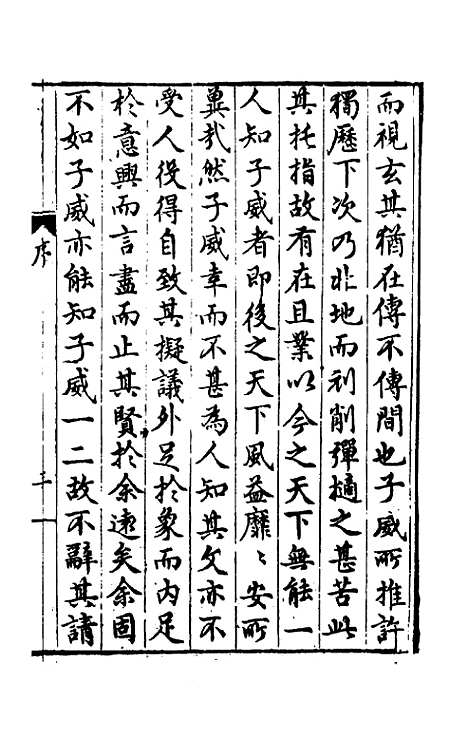 而視玄其猶在傳不傳間也子威所推許
獨歷下次乃北地而刓削彈擿之甚苦此
其托指故有在且業以今之天下無能一
人知子威者即後之天下風益靡〻安所
冀哉然子威幸而不甚為人知其文亦不
受人役得自致其擬議外足於象而內足
於意興而言盡而止其賢於余遠矣余固
不如子威亦能知子威一二故不辭其請
序
三